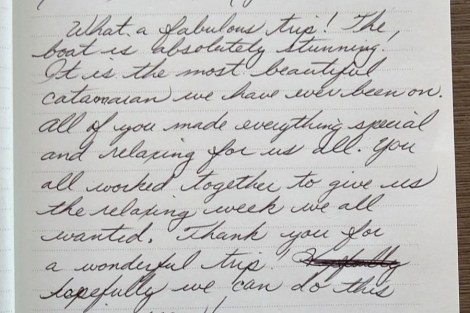 What a fabulous trip! The,
boat is absolutely stunning.
It is the most beautiful
catamaran we have ever been on.
All of you made everything special
and relaxing for us all. You
all worked together to give us
the relaxing week we all
wanted. Thank you for
a wonderful trip!
hopefully we can do this